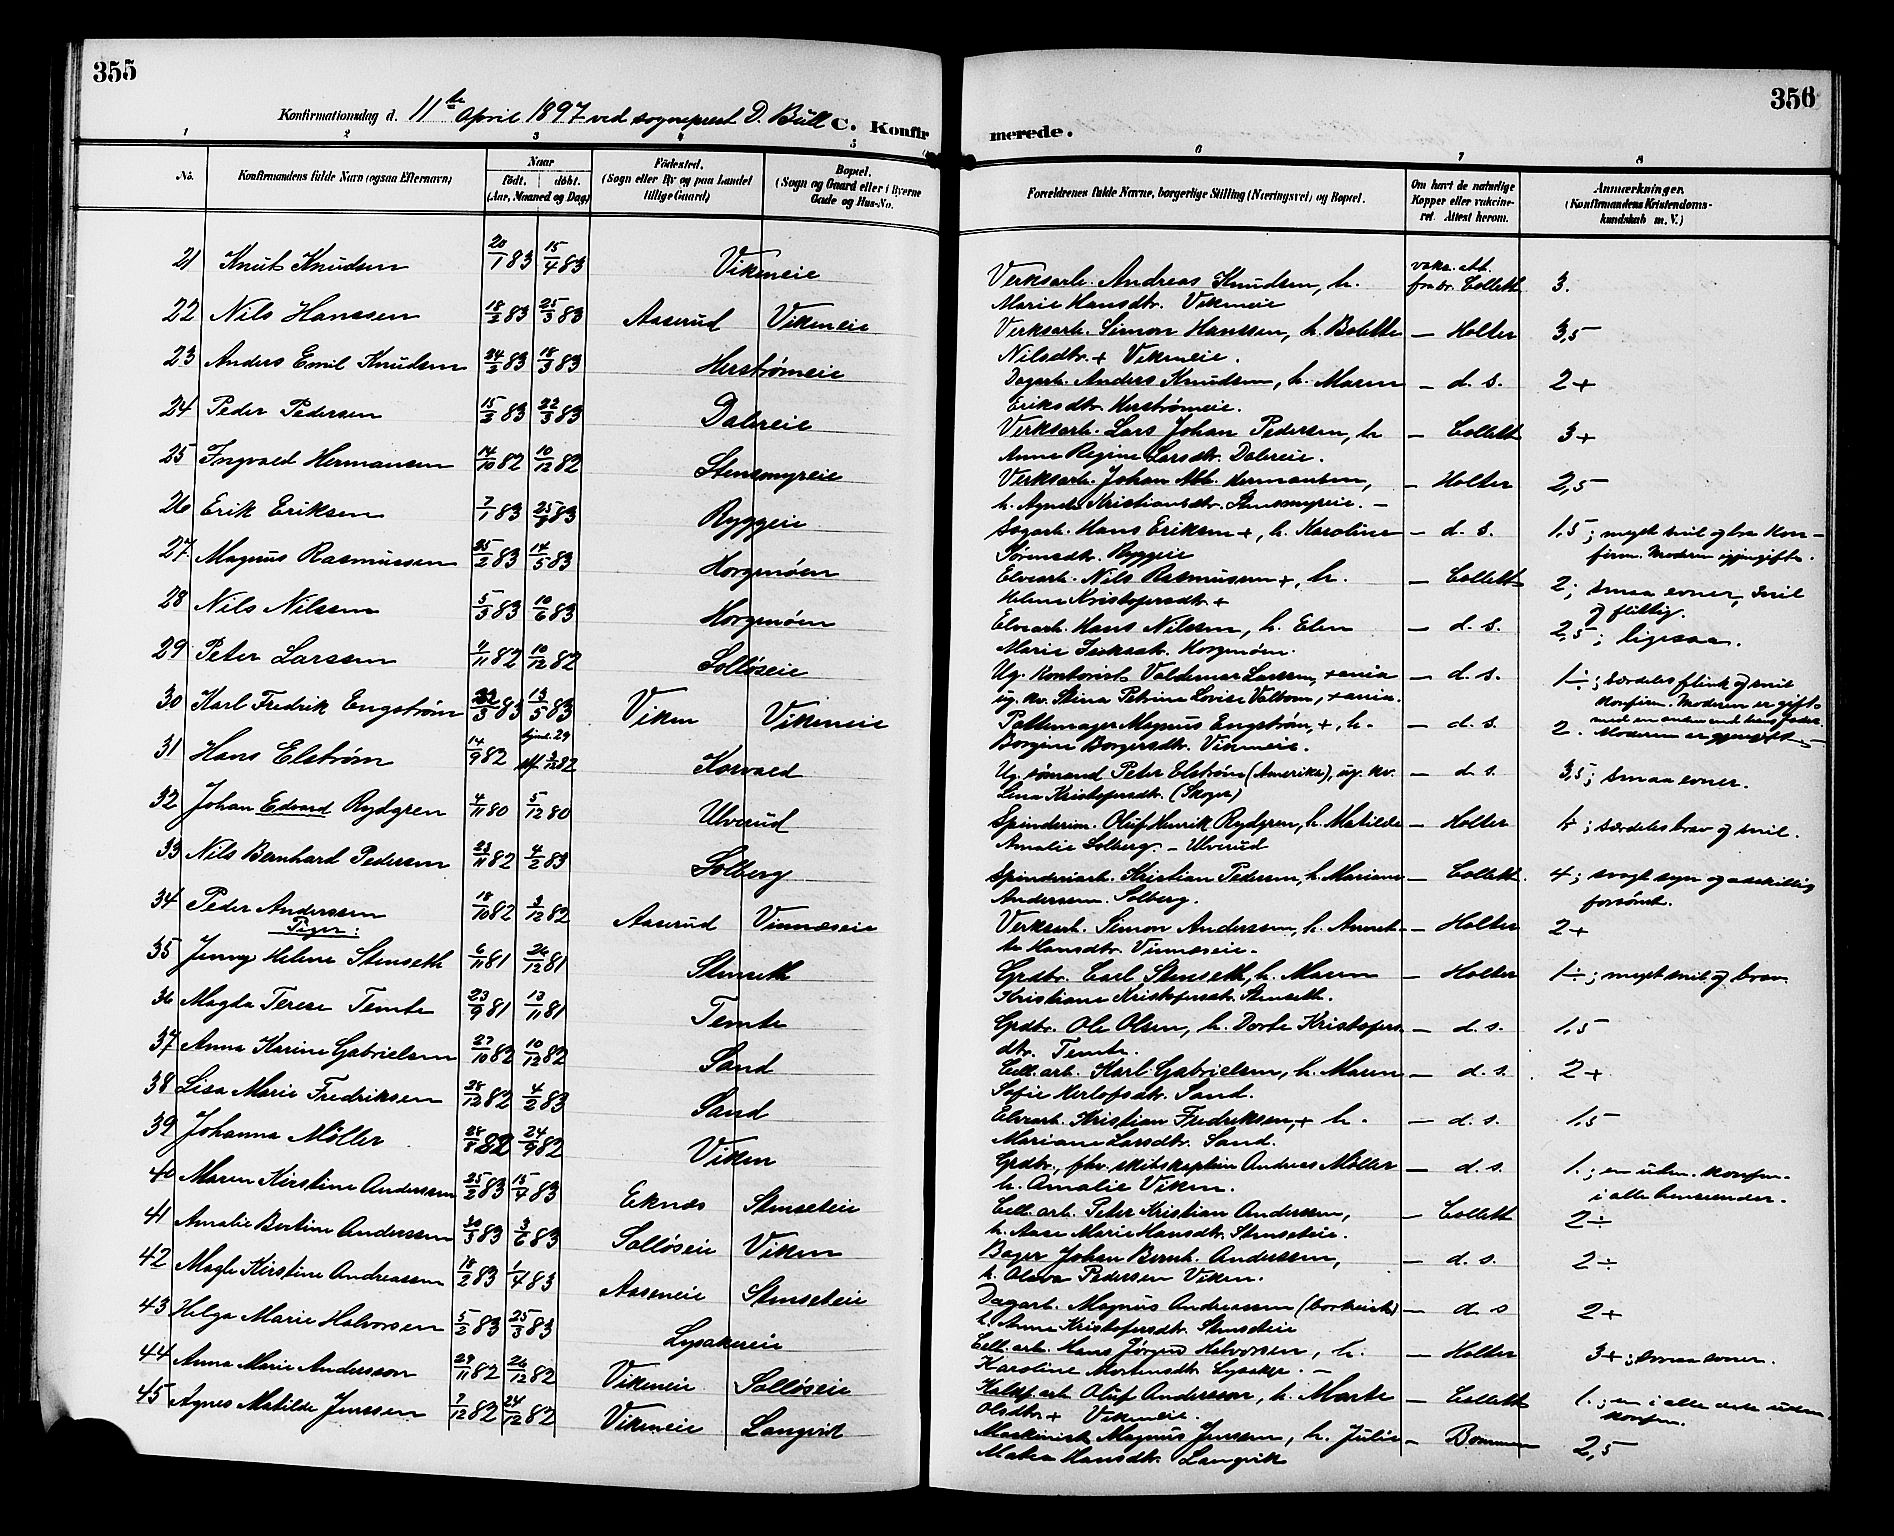 355
356
Konfirmationsdag d. 11te April 1897 ved sogneprest D. Bull
C. Konfir
merede.
1 2 3 4 5 6 7 8
No.
Konfirmandens fulde Navn (ogsaa Efternavn)
Naar
født. døbt.
(Aar, Maaned og Dag)
Fødested.
(Sogn eller By og paa Landet
tillige Gaard)
Bopæl.
(Sogn og Gaard eller i Byerne
Gade og Hus-No.
Forældrenes fulde Navne, borgerlige Stilling (Næringsvei) og Bopæl.
Om havt de naturlige
Kopper eller vakcine-
ret. Attest herom.
Anmærkninger.
(Konfirmandens Kristendoms-
kundskab m. V.)
21 Knut Knudsen 20/1 83 15/4 83 Vikeneie
Verksarb. Andreas Knudsen, h.
Marie Hansdtr. Vikeneie
vakc. att.
fra dr. Collett 3.
22 Nils Hanssen 18/2 83 25/3 83 Aaserud Vikeneie
Verksarb. Simon Hanssen, h. Bolette
Nilsdtr. + Vikeneie.
— Holter 3,5
23 Anders Emil Knudsen 24/2 83 18/3 83 Herstrømeie
Dagarb. Anders Knudsen, h. Maren
Eriksdtr. Herstrømeie.
— d. s. 2+
24 Peder Pedersen 15/2 83 22/3 83 Dalereie
Verksarb. Lars Johan Pedersen, h.
Anne Regine Larsdtr. Dalereie.
— Collett 3+
25 Ingvald Hermansen 14/10 82 10/12 82 Stensmyreie
Verksarb. Johan Alb. Hermansen,
h. Agnete Kristiansdtr. Stensmyreie. —
— Holter 2,5
26 Erik Eriksen 7/1 83 83 Ryggeie
Sagarb. Hans Eriksen +, h. Karoline
Sørensdtr. Ryggeie
— d. s. 1,5; meget snil og bra kon-
firm. Moderen igjengift.
27 Magnus Rasmussen 25/2 83 14/5 83 Horgenøen
Elvearb. Nils Rasmussen +, h.
Helene Kristofersdtr. +
— Collett 2; smaa evner, snil
og flittig.
28 Nils Nilssen 5/3 83 10/6 83 Horgenøen
Elvearb. Hans Nilssen, h. Elen
Marie Isaksdtr. Horgenøen.
— d. s. 2,5; ligesaa.
29 Peter Larssen 4/11 82 10/12 82 Solløseie
Ug. Kontorist Valdemar Larssen,
ug. kv. Stina Petrine Lovise Valbom,
— d. s. 1÷; særdeles flink og snil
konfirm. Moderen er gift
med en anden end hans fader.
30 Karl Fredrik Engström 83 13/5 83 Viken Vikeneie
Pottemager Magnus Engström, +, h.
Borgine Borgersdtr. Vikeneie.
— d. s. 2. Moderen er gjengift.
31 Hans Elstrøm 14/9 82 82 Korvald
Ug. sømand Peter Elstrøm (Amerika), ug. kv.
Lina Kristofersdtr. (Skoger)
— d. s. 3,5; smaa evner.
32 Johan Edvard Rydgren 4/11 80 5/12 80 Ulverud
Spinderim. Oluf Henrik Rydgren, h. Matilde
Amalie Solberg. — Ulverud
— Holter 4; særdeles brav og snil.
33 Nils Bernhard Pedersen 23/11 82 4/2 83 Solberg
Spinderiarb. Kristian Pedersen, h. Mariane
Andersen. Solberg.
— Collett. 4; svagt syn og adskillig
forsømt.
34 Peder Anderssen 18/10 82 3/12 82 Aaserud Vinnæseie
Verksarb. Simon Anderssen, h. Annet-
te Hansdtr. Vinnæseie.
— Holter 2+
Piger:
35 Jenny Helene Stenseth 6/11 81 26/12 81 Stenseth
Grdbr. Carl Stenseth, h. Maren
Kristiane Kristofersdtr. Stenseth.
— Holter 1÷; meget snil og brav.
36 Magda Terese Temte 23/9 81 13/11 81 Temte
Grdbr. Ole Olsen, h. Dorte Kristofers-
dtr. Temte.
— d. s. 1,5
37 Anna Karine Gabrielsen 27/10 82 10/12 82 Sand
Cell. arb. Karl Gabrielsen, h. Maren
Sofie Herlofsdtr. Sand.
— d. s. 2+
38 Lisa Marie Fredriksen 28/12 82 4/2 83 Sand
Elvearb. Kristian Fredriksen, + h.
Mariane Larsdtr. Sand.
— d. s. 1.5
39 Johanna Möller 28/8 82 24/9 82 Viken
Grdbr., fhv. skibskaptein Andreas Möller
h. Amalie Viken.
— d. s. 1.; en udm. konfirm.
i alle henseender.
40 Maren Kirstine Anderssen 25/2 83 15/4 83 Eknæs Stenseteie
Cell. arb. Peter Kristian Anderssen,
h. Aase Marie Hansdtr. Stenseteie.
— Collett 2÷
41 Amalie Bertine Anderssen 30/3 83 3/6 83 Solløseie Viken
Bager Johan Bernh. Anderssen,
h. Olava Pedersen Viken.
— d. s. 2÷
42 Magle Kirstine Andreassen 18/2 83 1/4 83 Aaseneie Stenseteie
Dagarb. Magnus Andreassen (bortreist)
h. Anne Kristofersdtr. Stenseteie
— d. s 2+
43 Helga Marie Halvorsen 5/2 83 25/3 83 Lysakereie
Cell. arb. Hans Jørgen Halvorsen, h.
Karoline Mortensdtr. Lysaker. —
— Holter 3+; smaa evner.
44 Anna Marie Andersson 29/11 82 26/12 82 Vikeneie Solløseie
Kalkf. arb. Oluf Andersson, h. Marte
Olsdtr. + Vikeneie.
— Collett 1.; en i alle dele udm.
konfirm.
45 Agnes Matilde Jenssen 7/12 82 24/12 82 Vikeneie Langvik
Maskinist Magnus Jenssen, h. Julie
Matea Hansdtr. Langvik
— 2,5